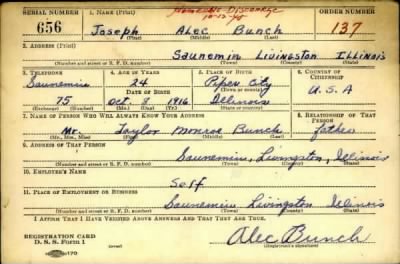 SERIAL NUMBER 1. NAME (Print) Honorable Discharge ORDER NUMBER
10-12-45
656 Joseph Alec Bunch 137
(First) (Middle) (Last)
2. ADDRESS (Print)
Saunemin Livingston ILLINOIS
(Number and street or R. F. D. number) (Town) (County) (State)
3. TELEPHONE 4. AGE IN YEARS 5. PLACE OF BIRTH 6. COUNTRY OF CITIZENSHIP
Saunemin 24 Piper City
DATE OF BIRTH (Town or county) U.S.A
75 Oct. 8 1916 Illinois
(Exchange) (Number) (Mo.) (Day) (Yr.) (State or country)
7. NAME OF PERSON WHO WILL ALWAYS KNOW YOUR ADDRESS 8. RELATIONSHIP OF THAT PERSON
Mr. Taylor Monroe Bunch father
(Mr., Mrs., Miss) (First) (Middle) (Last)
9. ADDRESS OF THAT PERSON
Saunemin, Livingston, Illinois
(Number and street or R. F. D. number) (Town) (County) (State)
10. EMPLOYER'S NAME
Self
11. PLACE OF EMPLOYMENT OR BUSINESS
Saunemin Livingston Illinois
(Number and street or R. F. D. number) (Town) (County) (State)
I AFFIRM THAT I HAVE VERIFIED ABOVE ANSWERS AND THAT THEY ARE TRUE.
REGISTRATION CARD
D. S. S. Form 1 Alec Bunch
170